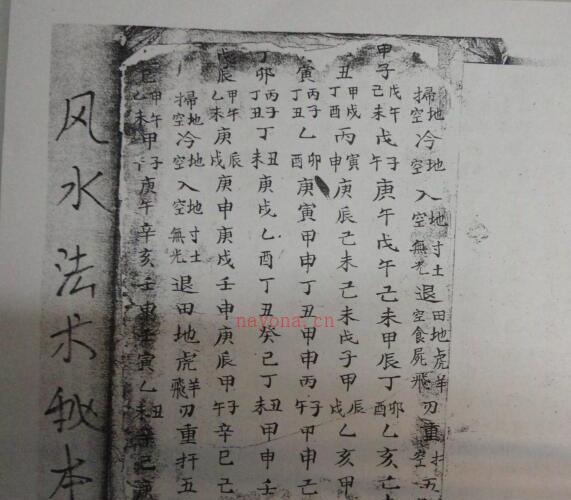 掃地空冷地空入地空寸土無光退田地空食屍虎羊飛刃重扦空五
甲子戊午己未子午庚午戊午己未甲辰丁卯酉乙亥己
丑甲戌丁酉丙寅申庚辰己未己未戊子甲辰戌乙亥甲
寅丙子丁丑乙卯酉庚寅甲申丁丑甲申丙子午甲申己
丁卯丙子丁丑丁丑未庚戌乙酉丁丑癸巳丁丑未甲申壬
戊辰甲午乙未庚辰戌庚申庚戌壬申庚辰甲子午辛巳己
掃地空冷地空入地空寸土無光退田地虎羊飛刃重扦五
巳甲午乙未甲子午庚午辛亥壬申壬寅乙丑未己庚
风水法术秘本
nayona.cn